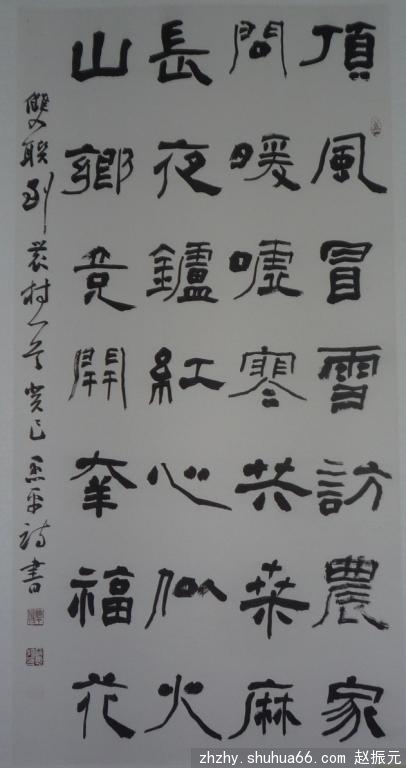 頂風冒雪訪農家
問暖噓寒共桑麻
長夜鑪紅心似火
山鄉竞開幸福花
雙联到農村一首癸巳平詩書
zhzhy.shuhua66.com 赵振元